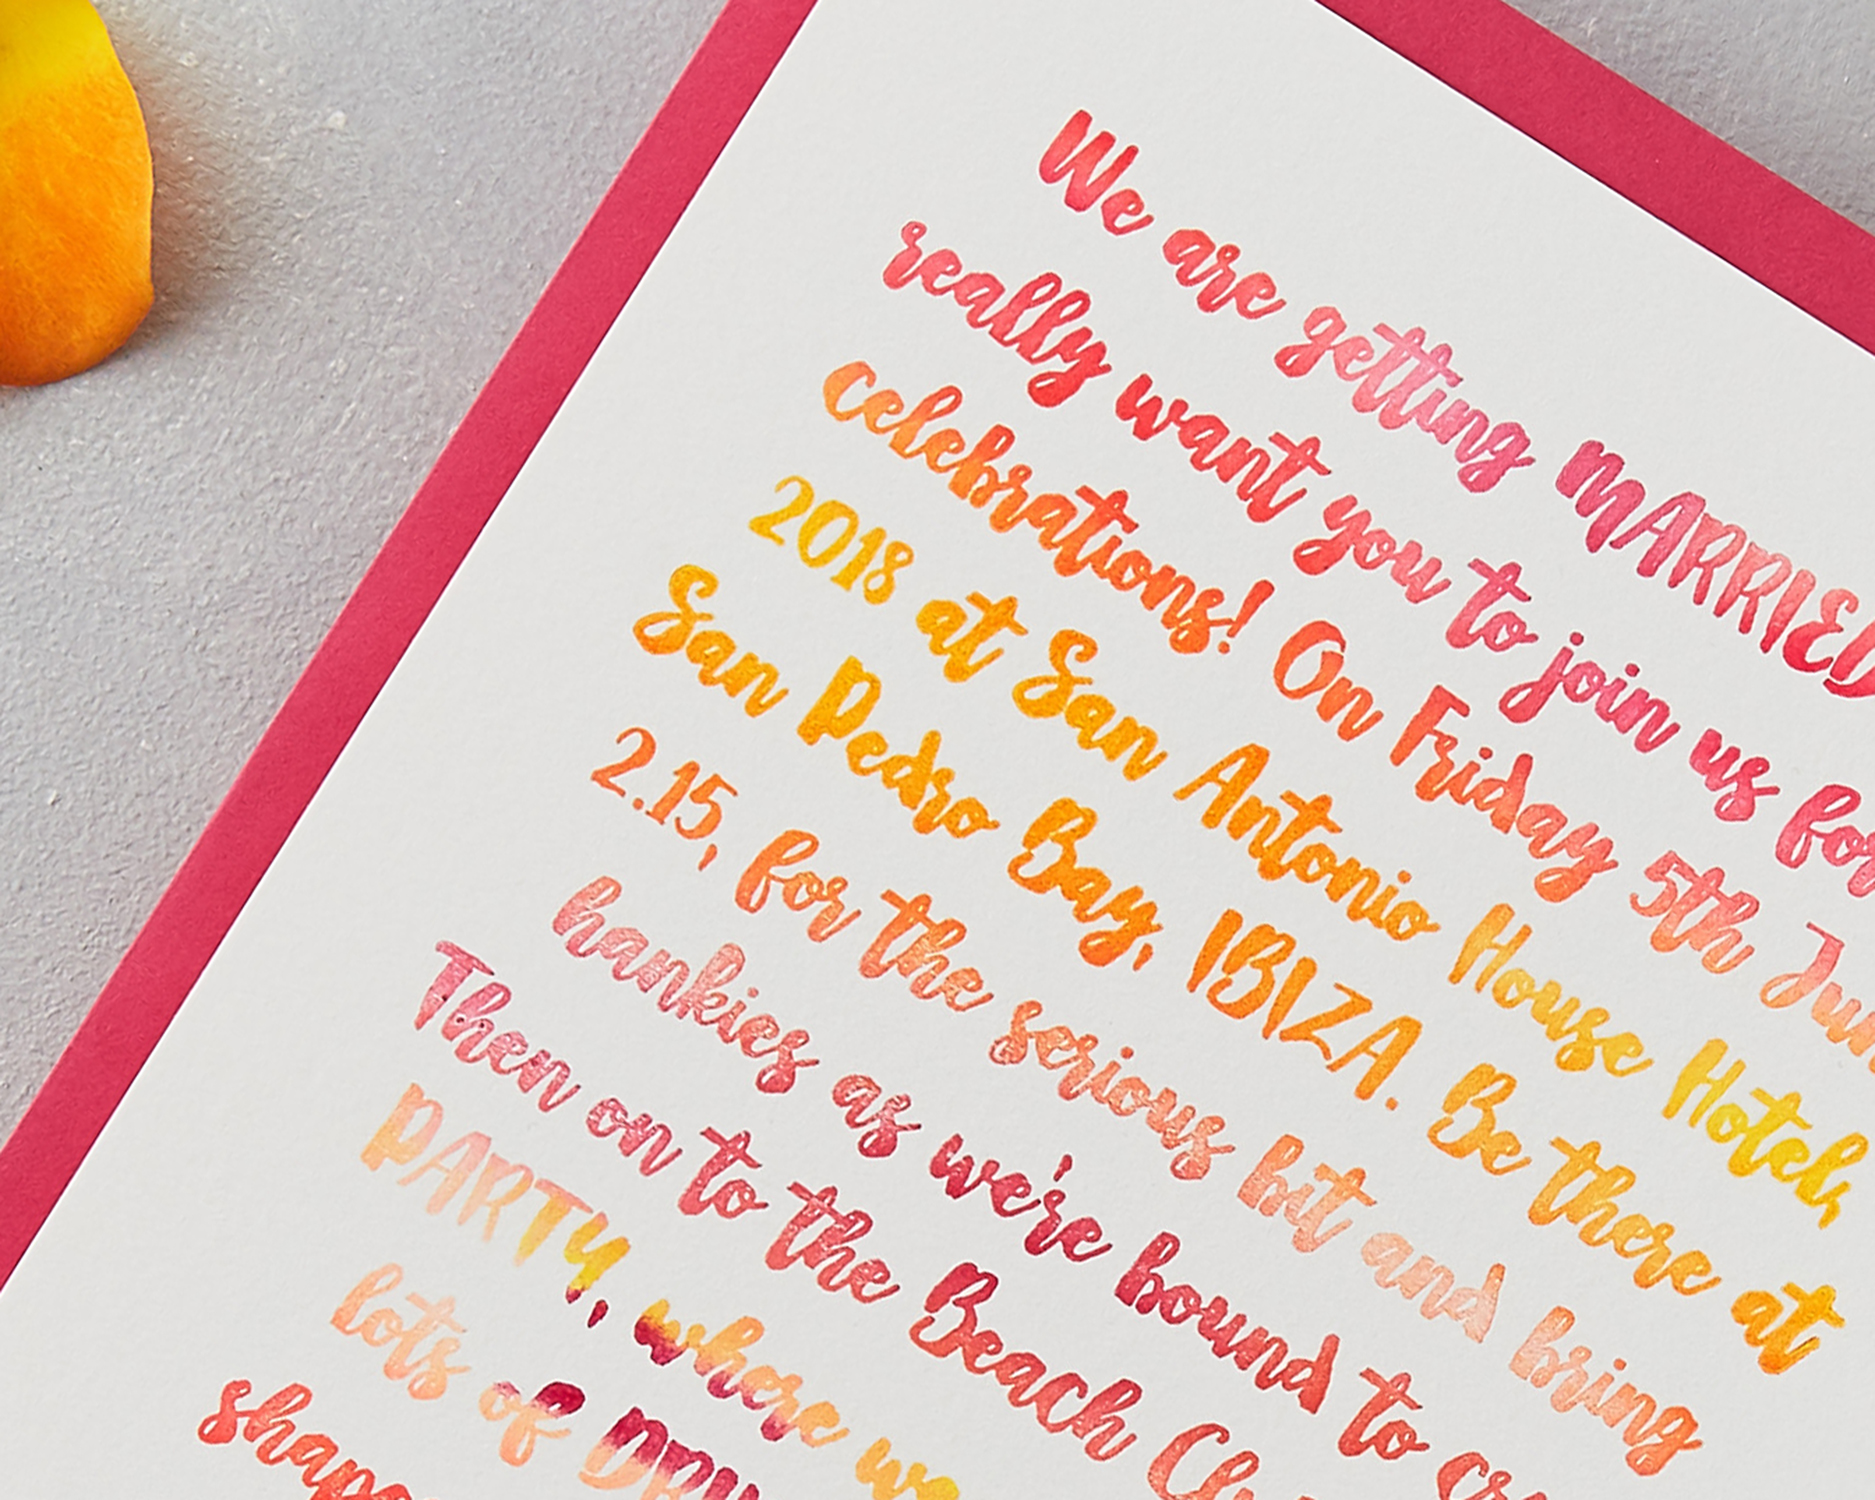 We are getting MARRIED
really want you to join us for
celebrations! On Friday 5th
2018 at San Antonio House Hotel,
San Pedro Bay, IBIZA. Be there at
2.15, for the serious bit and bring
hankies as we're bound to
Then on to the Beach
PARTY, where
lots of